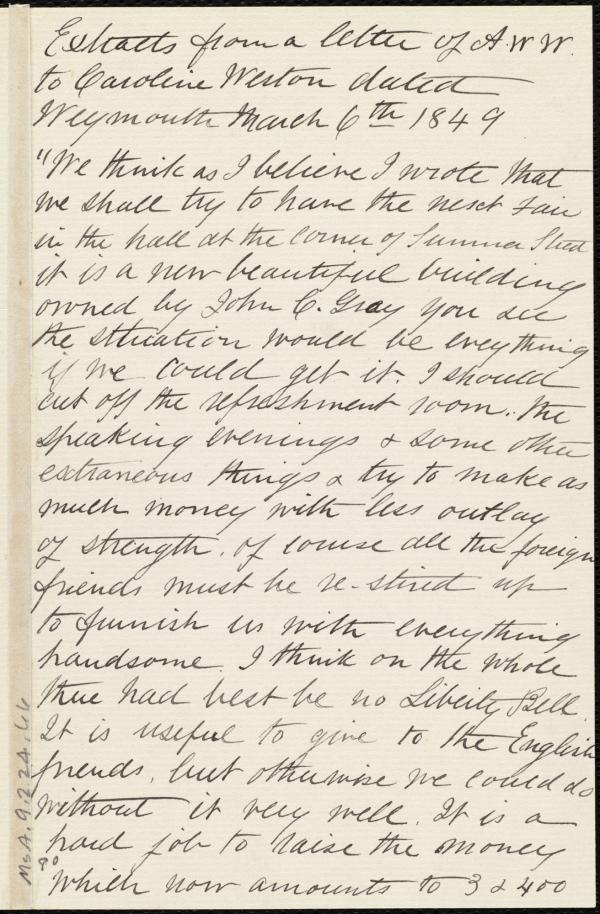 Extracts from a letter of A. W W.
to Caroline Weston dated
Weymouth March 6th 1849
"We think as I believe I wrote that
we shall try to have the next Fair
in the hall at the corner of Summer Street
it is a new beautiful building
owned by John C. Gray you see
the situation would be everything
if we could get it. I should
cut off the refreshment room. the
speaking evenings & some other
extraneous things & try to make as
much money with less outlay
of strength. of course all the foreign
friends must be re-stired up
to furnish us with everything
handsome. I think on the whole
there had best be no Liberty Bell.
It is useful to give to the English
friends, but otherwise we could do
without it very well. It is a
hard job to raise the money
which now amounts to 3 & 400
Ms A. 9. 2 24. 66